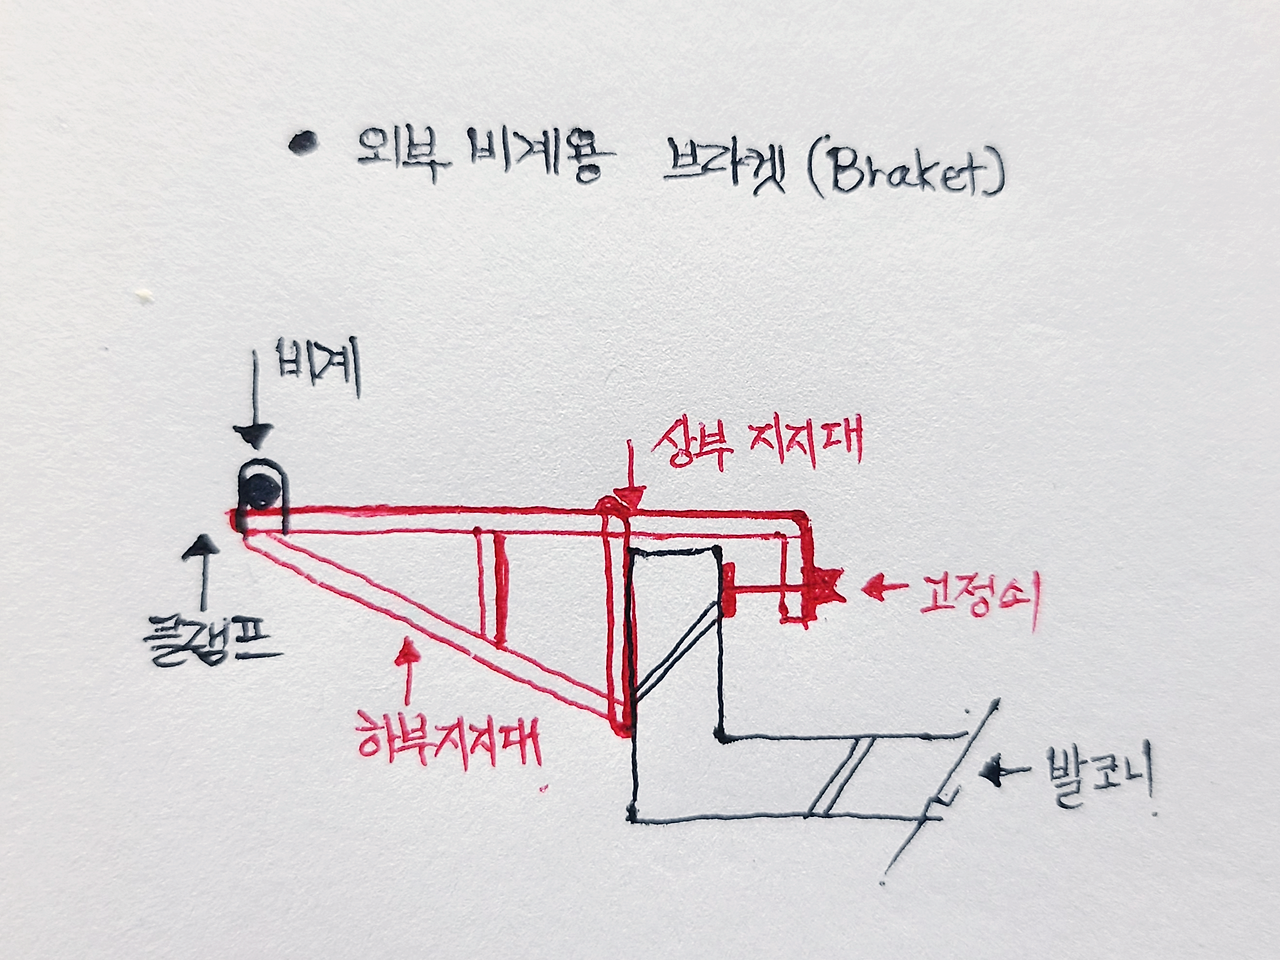 ● 외부 비계용 브라켓 (Braket)
비계
상부 지지대
클램프
고정쇠
하부지지대
발코니